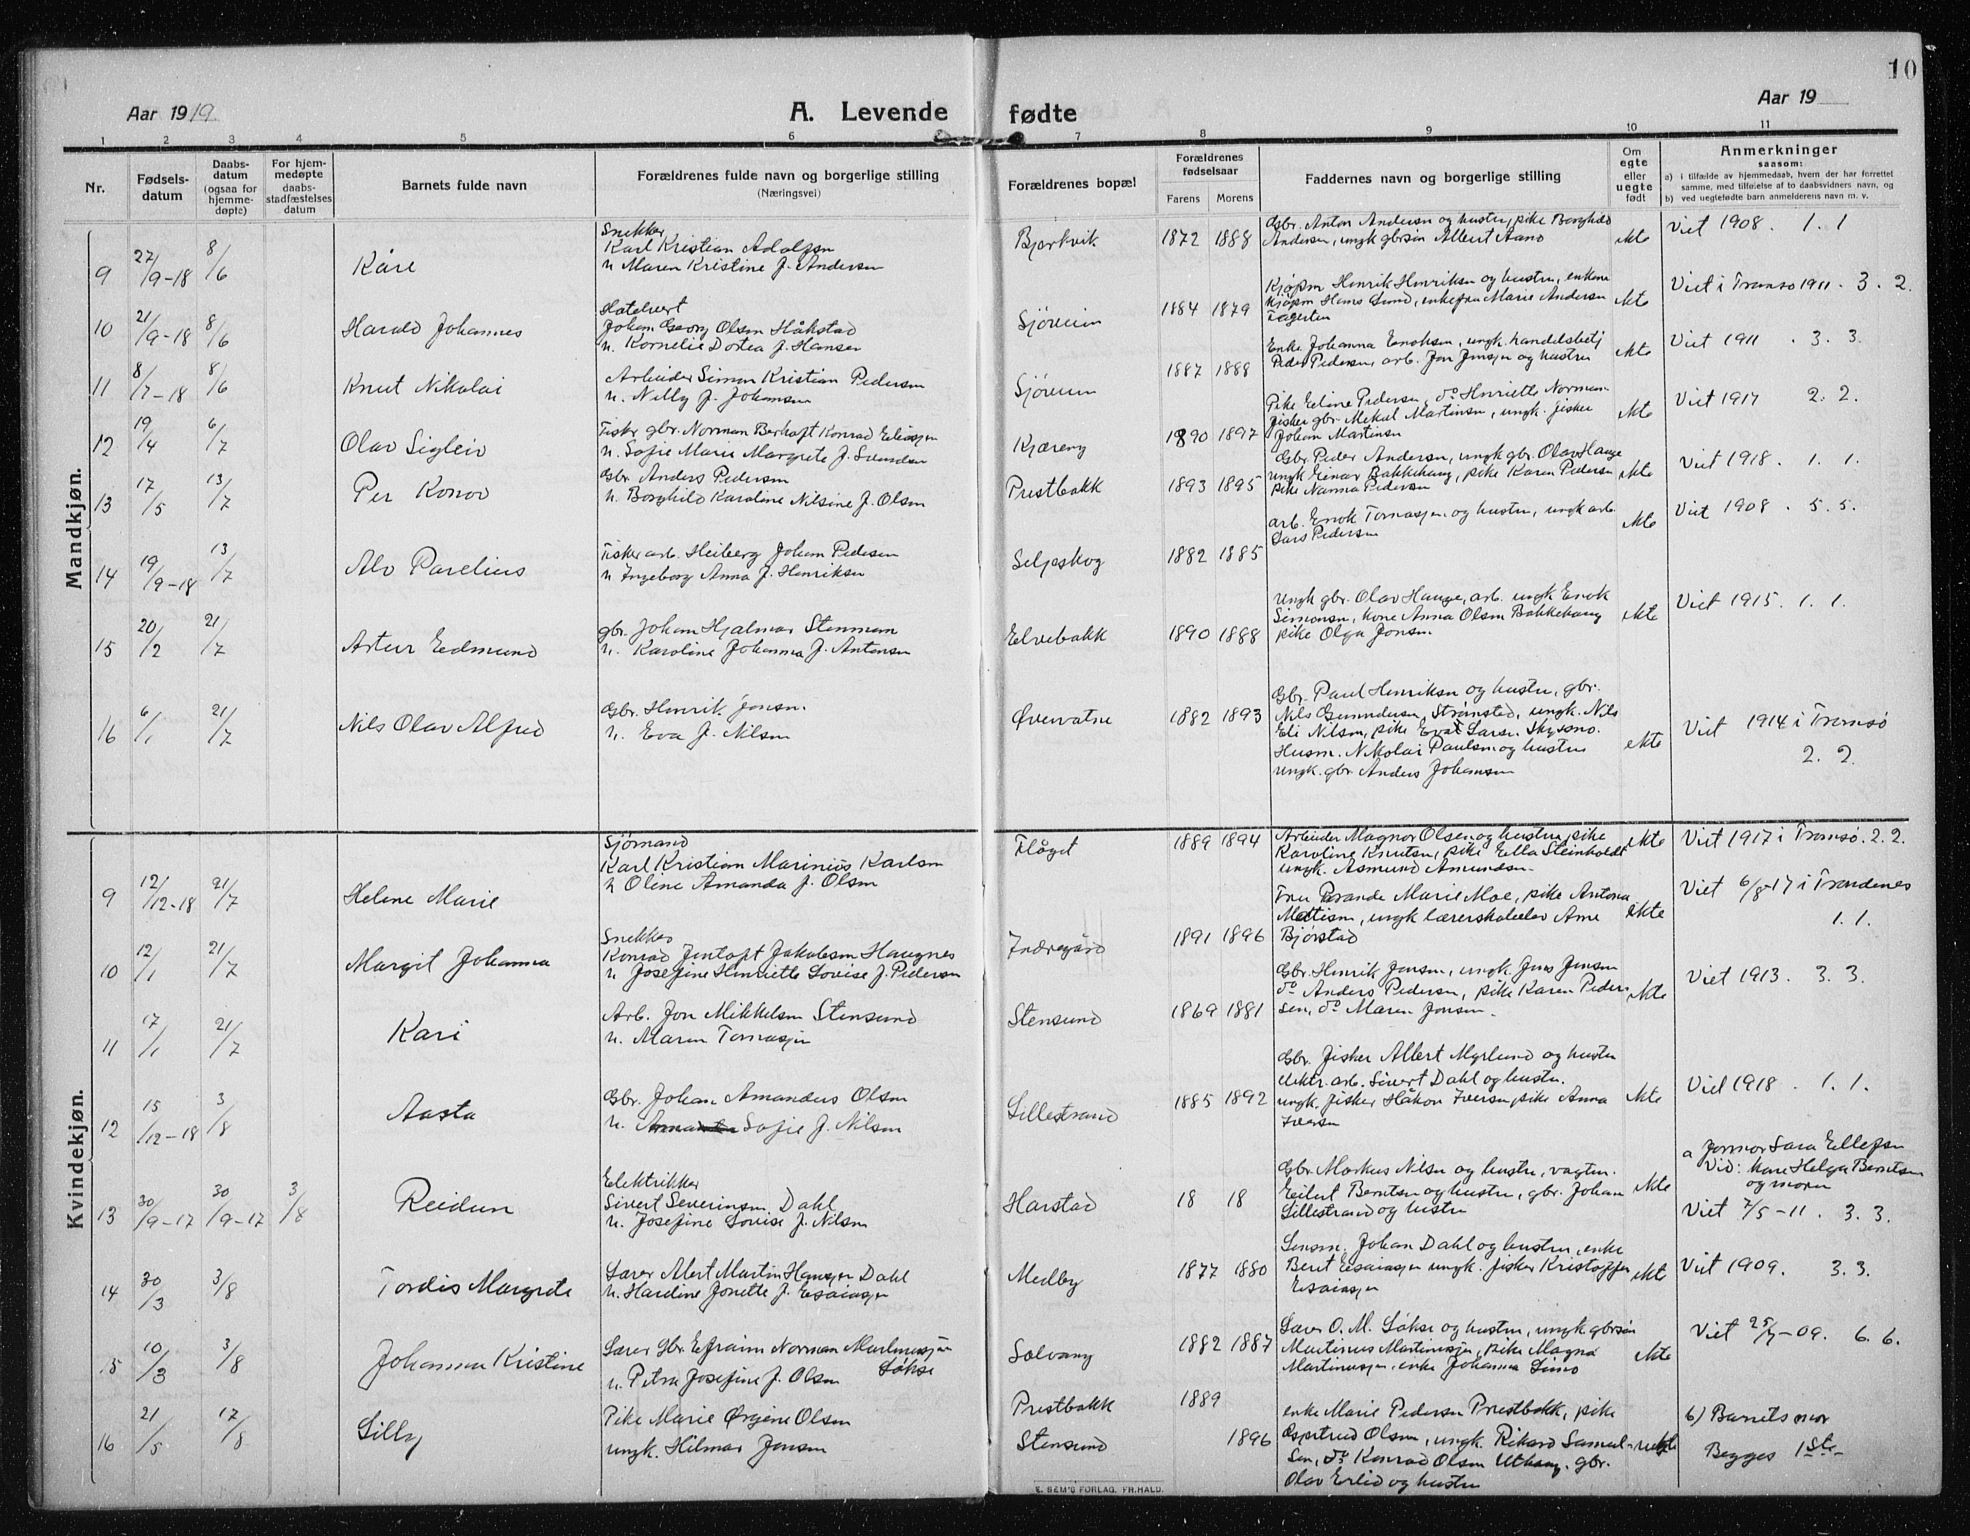 10
Aar 1919
A. Levende fødte
Aar 19
1 2 3 4 5 6 7 8 9 10 11
Nr.
Fødsels-
datum
Daabs-
datum
(ogsaa for
hjemme-
døpte)
For hjem-
medøpte
daabs-
stadfæstelses
datum
Barnets fulde navn
Forældrenes fulde navn og borgerlige stilling
(Næringsvei)
Forældrenes bopæl
Forældrenes
fødselsaar
Farens Morens
Faddernes navn og borgerlige stilling
Om
egte
eller
uegte
født
Anmerkninger
saasom:
a) i tilfælde av hjemmedaab, hvem der har forrettet
samme, med tilføielse af to daabsvidners navn, og
b) ved uegtefødte barn anmelderens navn m. v.
Mandkjøn.
9 27/9-18 8/6 Kåre
Snekker
Karl Kristian Adolfsen
u. Maren Kristine f. Andersen
Bjorkvik 1872 1888
Gbr. Anton Andersen og hustru, pike Borghild
Andersen, ungk gbrsøn Albert Aano
ekte
Viet 1908. 1.1
10 21/9-18 8/6 Harald Johannes
Hotelvert
Johan Georg Olsen Håkstad
u. Kornelie Dortea f. Hansen
Sjøveien 1884 1879
Kjøpm Henrik Henriksen og hustru, enkene
kjøpm Hans Lund, enkefru Marie Andersen
ekte
Viet i Tromsø 1911. 3. 2.
11 8/7-18 8/6 Knut Nikolai
Arbeider Simon Kristian Pedersen
u. Nilly f. Johansen
Sjøveien 1887 1888
Enke Johanna Enoksen, ungk. handelsbetj
Peder Pedersen, arb. Jon Jensen og hustru
ekte
Viet 1911. 3. 3.
12 19/4 6/7 Olav Sigleiv
Fisker gbr. Norman Berhoft Konrad Eliassen
u. Sofie Marie Margrete f. Svendsen
Kjæreng 1890 1897
Pike Eline Pedersen, do Henriette Norman
fisker gbr. Mekal Martinsen, ungk. fisker
Johan Martinsen
ekte
Viet 1917 2. 2.
13 17/5 13/7 Per Konov
Gbr. Anders Pedersen
u. Borghild Karoline Nilsine f. Olsen
Prestbakk 1893 1895
Gbr. Peder Andersen, ungk gbr. Olav Hauge
ungk Einar Bakkehaug, pike Karen Pedersen
pike Nanna Pedersen
ekte
Viet 1918. 1. 1.
14 19/9-18 13/7 Alv Parelius
Fisker arb. Heiberg Johan Pedersen
u. Ingeborg Anna f. Henriksen
Seljeskog 1882 1885
arb. Enok Tomassen og hustru, ungk arb.
Lars Pedersen
ekte
Viet 1908. 5. 5.
15 20/2 21/7 Artur Edmund
gbr. Johan Hjalmar Stenman
u. Karoline Johanna f. Antonsen
Elvebakk 1890 1888
Ungk gbr. Olav Hauge, arb. ungk Enok
Simonsen, kone Anna Olsen Bakkehaug
pike Olga Jonsen
ekte
Viet 1915. 1. 1.
16 6/1 21/7 Nils Olav Alfred
Gbr. Henrik Jonsen.
u. Eva f. Nilsen
Øvervatne 1882 1893
Gbr. Paul Henriksen og hustru, gbr.
Nils Gunndersen, Strømstad, ungk. Nils
Eli Nilsen, pike Eva Larsen Skyssno.
Husm. Nikolai Paulsen og hustru
ungk. gbr Anders Johansen
ekte
Viet 1914 i Tromsø
2. 2.
Kvindekjøn.
9 12/12-18 21/7 Helene Marie
Sjømand
Karl Kristian Marinius Karlsen
u Oline Amanda f. Olsen
Flåget 1889 1894
Arbeider Magnor Olsen og hustru, pike
Karoline Knutsen, pike Ella Steinholdt
ungk. Asmund Amundsen.
ekte
Viet 1917 i Tromsø. 2. 2.
10 12/1 21/7 Margit Johanna
Snekker
Konrad Jentoft Jakobsen Haugnes
u. Josefine Henriette Lovise f. Pedersen
Indregård 1891 1896
Fru Brande Marie Moe, pike Antona
Mattisen, ungk lærerskoleelev Arne
Bjørstad
ekte
Viet 6/8-17 i Trondenes
1. 1.
11 17/1 21/7 Kari
Arb. Jon Mikkelsen Stensund
u. Maren Tomassen
Stensund 1869 1881
Gbr. Henrik Jensen, ungk. Jens Jensen
do Anders Pedersen, pike Karen Peder-
sen, do Maren Jonsen.
ekte
Viet 1913. 3. 3.
12 15/12-18 3/8 Aasta
Gbr. Johan Amandus Olsen
u. Sofie f. Nilsen
Lillestrand 1885 1892
Gbr. fisker Albert Myrlund og hustru
elektr. arb. Sivert Dahl og hustru.
ungk. fisker Håkon Iversen, pike Anna
Iversen
ekte
Viet 1918. 1. 1.
13 30/9-17 30/9-17 3/8 Reidun
Elektrikker
Sivert Severinsen Dahl
u. Josefine Lovise f. Nilsen
Harstad 18 18
Gbr. Markus Nilsen og hustru, vagtm.
Eilert Berntsen og hustru, gbr. Johan
Lillestrand og hustru
ekte
a Jormor Sara Ellefsen
Vid: kone Helga Berntsen
og moren
Viet 7/5-11. 3. 3.
14 30/3 3/8 Tordis Margrete
Lærer Alert Martin Hansen Dahl
u. Hardine Jonette f. Esaiassen
Medby 1877 1880
Lensm. Johan Dahl og hustru, enke
Berit Esaiassen ungk. fisker Kristoffer
Esaiassen
ekte
Viet 1909. 3. 3.
15 10/3 3/8 Johanna Kristine
Lærer gbr. Efraim Norman Martinussen
Løkse
u. Petra Josefine f. Olsen
Solvang 1882 1887
Lærer O. M. Løkse og hustru, ungk gbrsøn
Martinus Martinussen, pike Magna
Martinussen, enke Johanna Simo
ekte
Viet 25/7-09. 6. 6.
16 21/5 17/8 Lilly
Pike Marie Ørgine Olsen
ungk. Hilmar Jensen
Prestbakk 1889
Stensund 1896
enke Marie Pedersen Prestbakk, pike
Gjertrud Olsen, ungk. Rikard Samuel-
sen, do Konrad Olsen Uthaug, gbr.
Olav Erlid og hustru
uekte
b) Barnets mor
Begges 1ste
E. SEM'S FORLAG, FR.HALD.